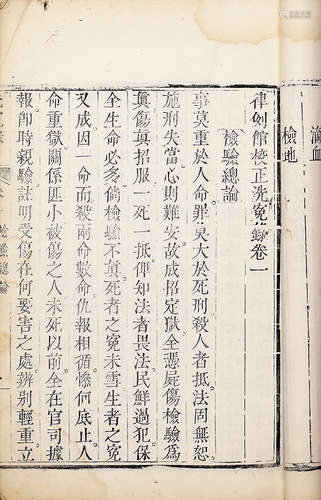 滴血
檢地
律例館校正洗寃錄卷一
檢驗總論
事莫重於人命罪莫大於死刑殺人者抵法固無恕
施刑失當心則難安故成招定獄全憑屍傷檢驗爲
真傷真招服一死一抵俾知法者畏法民鮮過犯保
全生命必多倘檢驗不真死者之寃未雪生者之寃
又成因一命而殺兩命數命仇報相循慘何底止人
命重獄關係匪小被傷之人未死以前全在官司據
報即時親驗註明受傷在何要害之處辨別輕重立
檢驗總論